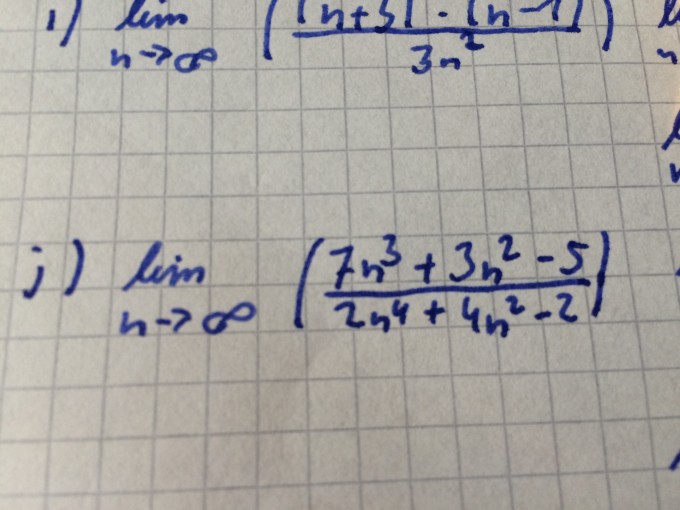 i) lim n→∞ ( (n+3) · (n-1) / 3n² )
j) lim n→∞ ( 7n³ + 3n² - 5 / 2n⁴ + 4n² - 2 )